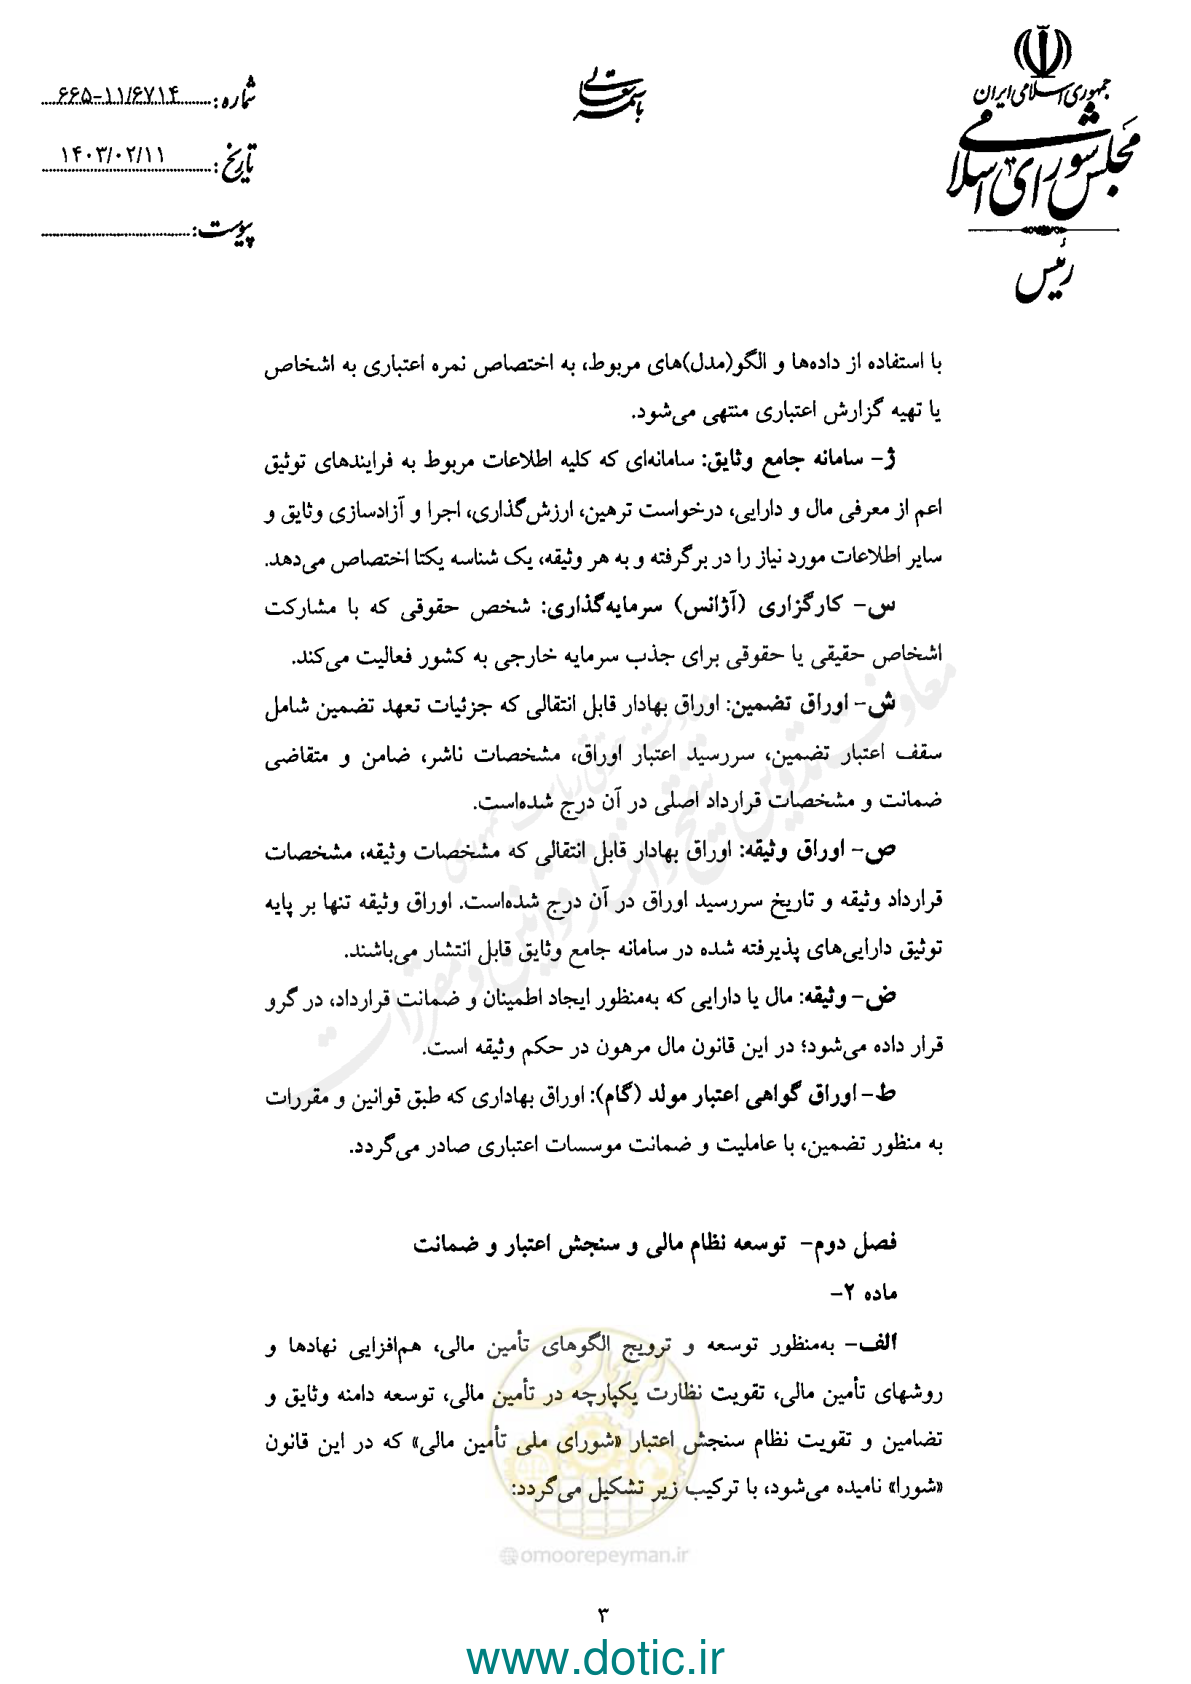 جمهوری اسلامی ایران
مجلس شورای اسلامی
رئیس
باسمه تعالی
شماره: ۶۶۵-۱۱/۶۷۱۴
تاریخ: ۱۴۰۳/۰۲/۱۱
پیوست:
با استفاده از داده‌ها و الگو(مدل)های مربوط، به اختصاص نمره اعتباری به اشخاص
یا تهیه گزارش اعتباری منتهی می‌شود.
ژ- سامانه جامع وثایق: سامانه‌ای که کلیه اطلاعات مربوط به فرایندهای توثیق
اعم از معرفی مال و دارایی، درخواست ترهین، ارزش‌گذاری، اجرا و آزادسازی وثایق و
سایر اطلاعات مورد نیاز را در برگرفته و به هر وثیقه، یک شناسه یکتا اختصاص می‌دهد.
س- کارگزاری (آژانس) سرمایه‌گذاری: شخص حقوقی که با مشارکت
اشخاص حقیقی یا حقوقی برای جذب سرمایه خارجی به کشور فعالیت می‌کند.
ش- اوراق تضمین: اوراق بهادار قابل انتقالی که جزئیات تعهد تضمین شامل
سقف اعتبار تضمین، سررسید اعتبار اوراق، مشخصات ناشر، ضامن و متقاضی
ضمانت و مشخصات قرارداد اصلی در آن درج شده‌است.
ص- اوراق وثیقه: اوراق بهادار قابل انتقالی که مشخصات وثیقه، مشخصات
قرارداد وثیقه و تاریخ سررسید اوراق در آن درج شده‌است. اوراق وثیقه تنها بر پایه
توثیق دارایی‌های پذیرفته شده در سامانه جامع وثایق قابل انتشار می‌باشند.
ض- وثیقه: مال یا دارایی که به‌منظور ایجاد اطمینان و ضمانت قرارداد، در گرو
قرار داده می‌شود؛ در این قانون مال مرهون در حکم وثیقه است.
ط- اوراق گواهی اعتبار مولد (گام): اوراق بهاداری که طبق قوانین و مقررات
به منظور تضمین، با عاملیت و ضمانت موسسات اعتباری صادر می‌گردد.
فصل دوم- توسعه نظام مالی و سنجش اعتبار و ضمانت
ماده ۲-
الف- به‌منظور توسعه و ترویج الگوهای تأمین مالی، هم‌افزایی نهادها و
روشهای تأمین مالی، تقویت نظارت یکپارچه در تأمین مالی، توسعه دامنه وثایق و
تضامین و تقویت نظام سنجش اعتبار «شورای ملی تأمین مالی» که در این قانون
«شورا» نامیده می‌شود، با ترکیب زیر تشکیل می‌گردد:
@omoorepeyman.ir
۳
www.dotic.ir